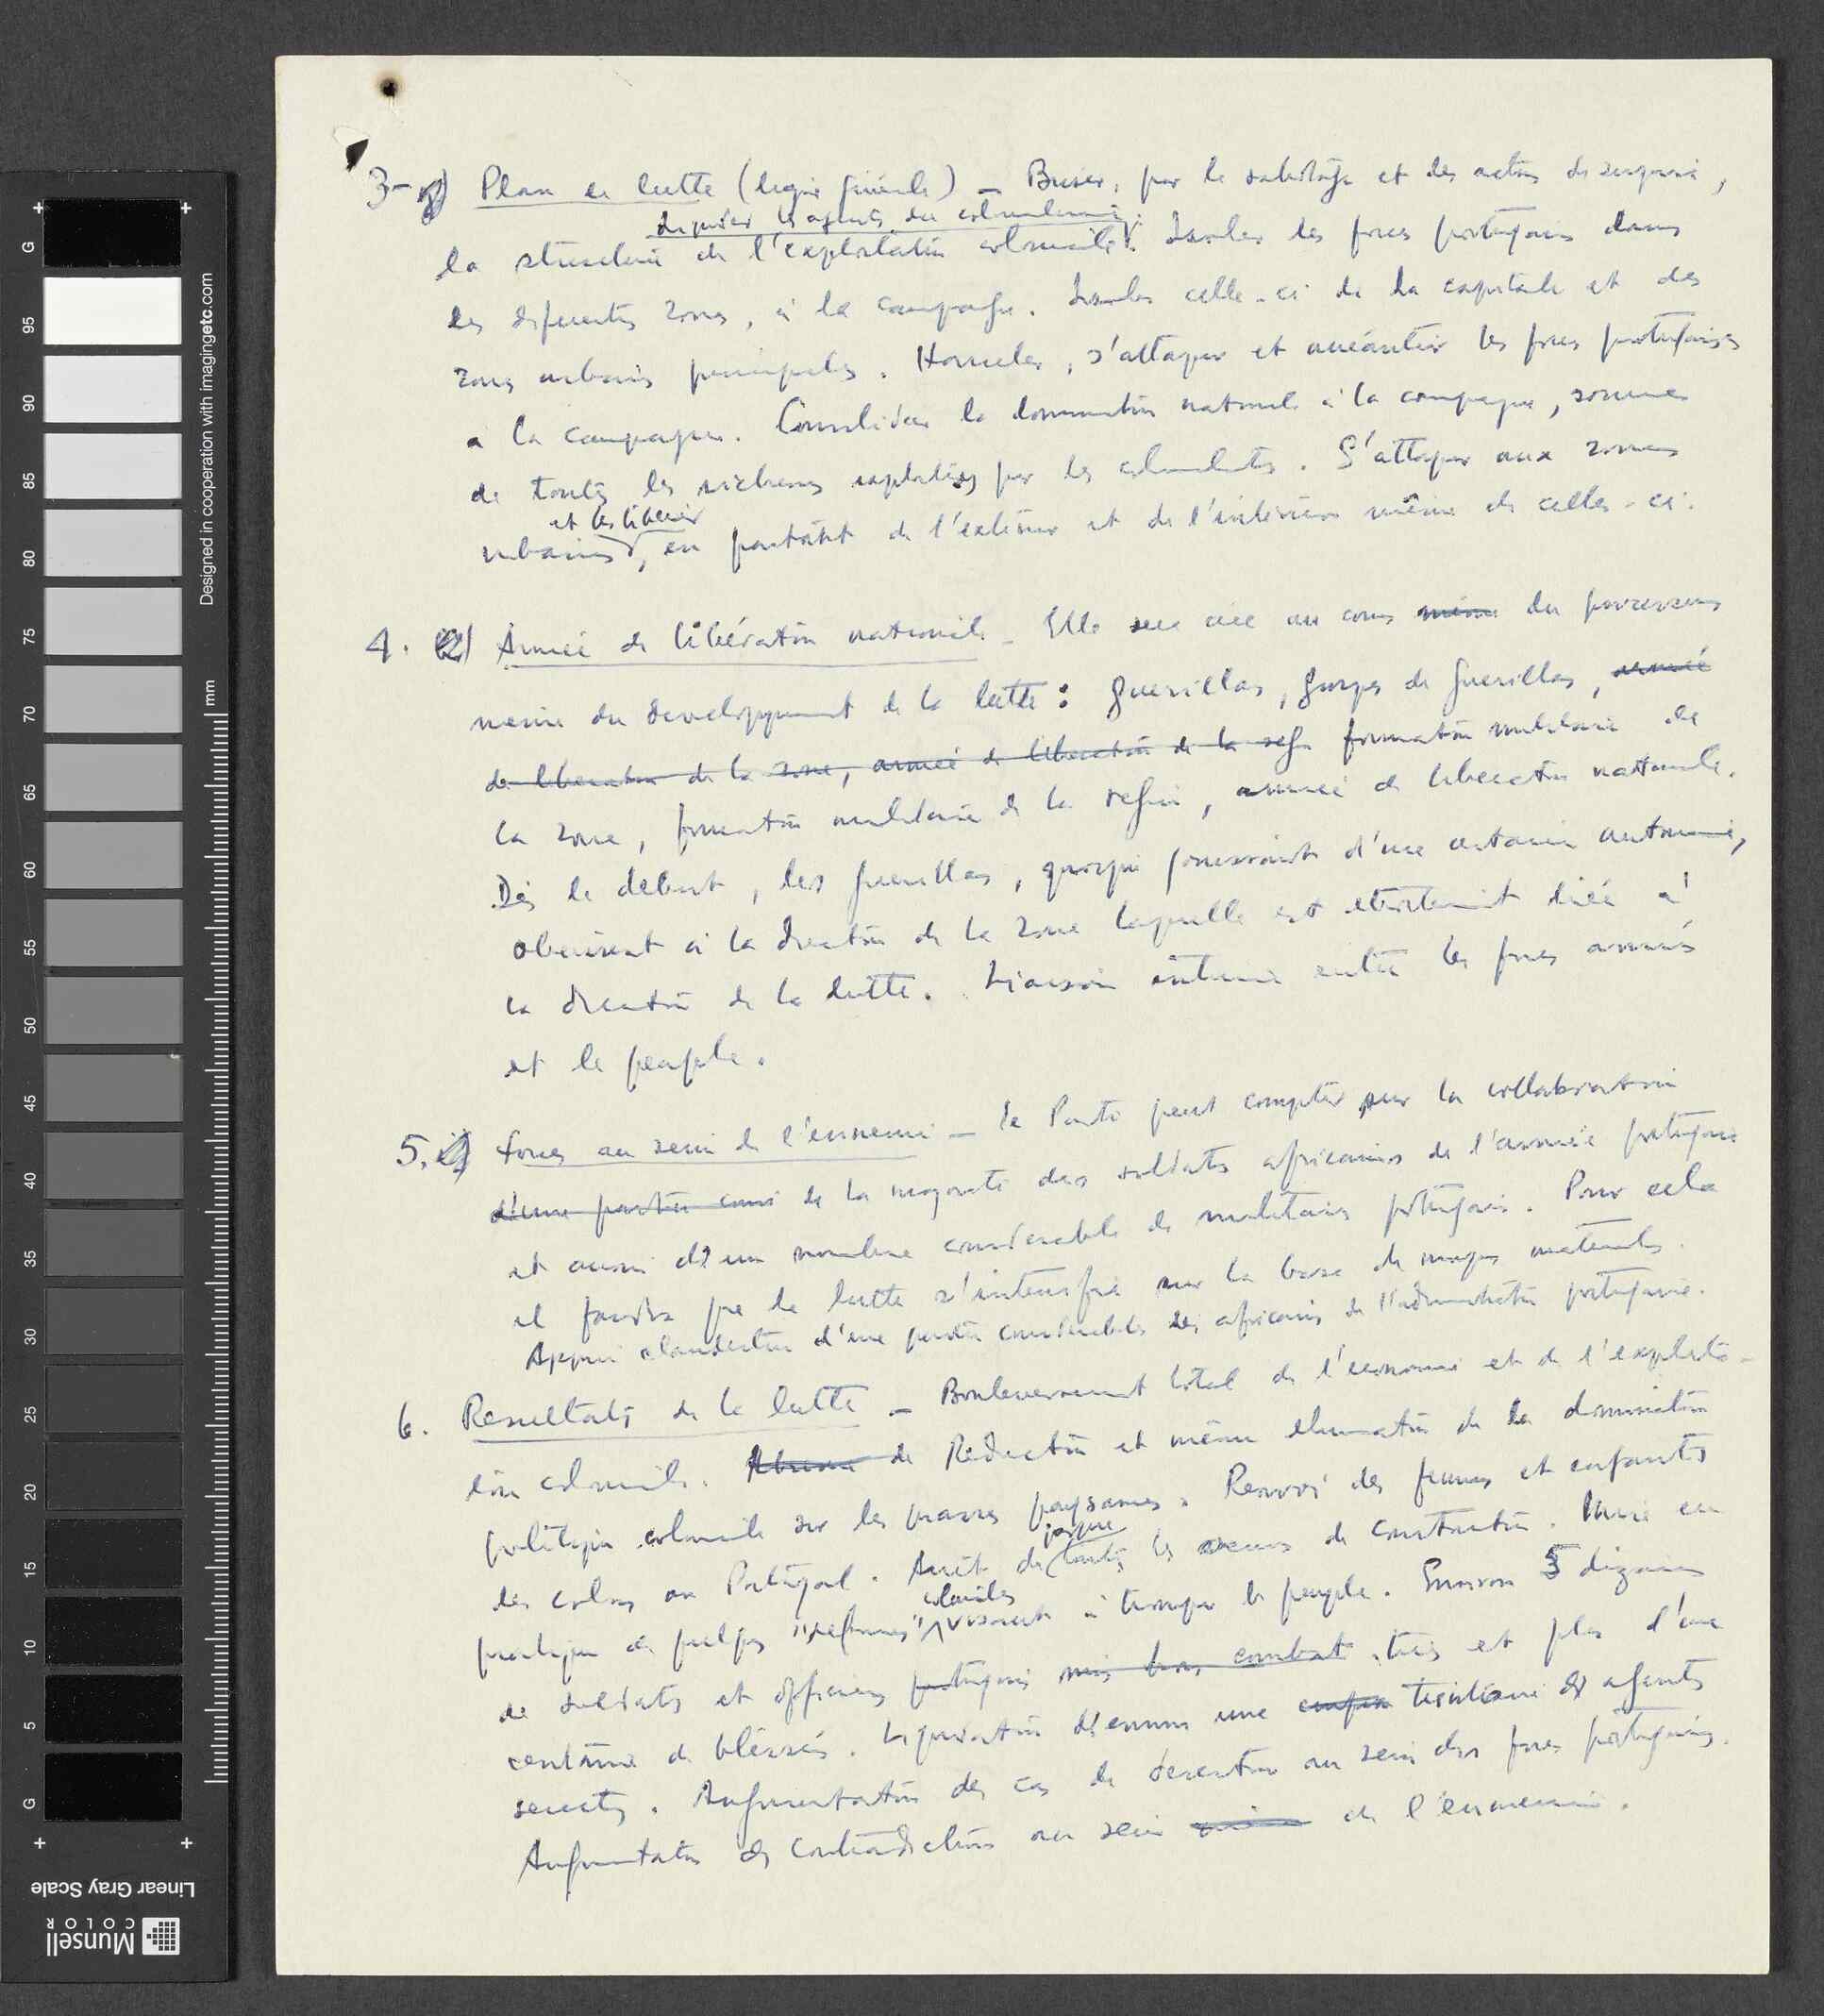 3- Plan de lutte (ligne générale) — Briser, par le sabotage et des actions de surprise,
liquider les agents du colonialisme
la structure de l'exploitation coloniale. Isoler les forces portugaises dans
les diferentes zones, à la campagne. Isoler celle-ci de la capitale et des
zones urbaines principales. Harceler, s'attaquer et anéantir les forces portugaises
à la campagne. Consolider la domination nationale à la campagne, source
de toutes les richesses exploitées par les colonialistes. S'attaquer aux zones
et les libérer
urbaines, en partant de l'extérieur et de l'intérieur même de celles-ci.
4. Armée de libération nationale — Elle sera crée au cours même du processus
même du developpement de la lutte : guerillas, groupes de guerillas, armée
de liberation de la zone, armée de liberation de la reg. formation militaire de
la zone, formation militaire de la region, armée de liberation nationale.
Dès le debut, les guerillas, quoique jouissant d'une certaine autonomie,
obeissent à la direction de la zone laquelle est etroitement liée à
la direction de la lutte. Liaison intime entre les forces armées
et le peuple.
5. Forces au sein de l'ennemi — Le Parti peut compter sur la collaboration
d'une partie de la majorité des soldats africains de l'armée portugaise
et aussi d'un nombre considerable de militaires portugais. Pour cela
il faudra que la lutte s'intensifie sur la base de moyens materiels.
Appui clandestin d'une partie considerable des africains de l'administration portugaise.
6. Resultats de la lutte — Bouleversement total de l'economie et de l'exploita-
tion coloniale. de Réduction et même elimination de la domination
politique coloniale sur les masses paysannes. Renvoi des femmes et enfants
presque
des colons au Portugal. Arrêt de toutes les oeuvres de construction. Mise en
coloniales
pratique de quelques "reformes" visant à tromper le peuple. Environ 5 dizaines
de soldats et officiers portugais mis hors combat tués et plus d'une
centaine de bléssés. Liquidation d'environ une trentaine d'agents
secrets. Augmentation des cas de desertion au sein des forces portugaises.
Augmentation des contradictions au sein de l'ennemi.
Designed in cooperation with imagingetc.com
mm
G 95 90 85 80 75 70 65 60 55 50 45 40 35 30 25 20 15 10 5 G
Linear Gray Scale
Munsell
COLOR